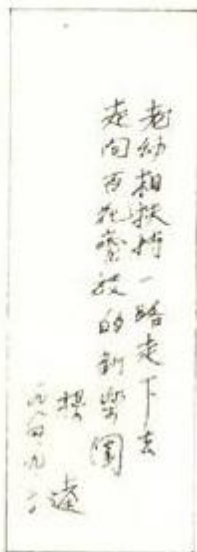 老幼相扶持一路走下去
走向百花齊放的新樂園
楊逵
一九八四、九、